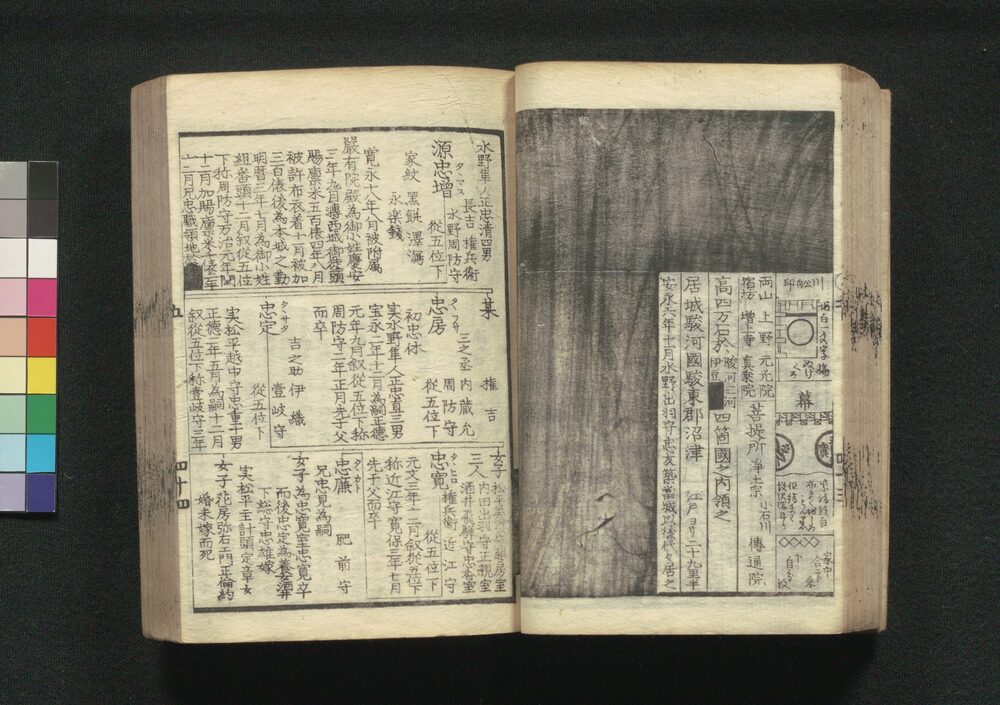 両山 上野 元光院
宿坊 増上寺 真乗院
菩提所 浄土宗 小石川 傳通院
高四万石余 駿河 三河 伊豆 四箇國之内領之
居城駿河國駿東郡沼津 江戸ヨリ二十九里半
安永六年十一月水野出羽守忠友築當城以後代々居之
幕
水野隼人正忠清四男
源忠増
タヽマス
長吉 権兵衛
水野周防守
従五位下
家紋 黒餅 澤瀉
永楽錢
寛永十八年八月被附属
嚴有院殿為御小姓慶安
三年九月
賜廩米五百俵四年八月
被許布衣着十一月被加
三百俵後為本城之勤
明暦三年七月為御小姓
組番頭十二月叙従五位
下称周防守万治元年閏
十二月加賜廩米
十二月兄忠職領地
某 権吉
忠房
三之丞 内蔵允
周防守
従五位下
初忠休
実水野隼人正忠直三男
宝永二年十二月為嗣正徳
元年九月叙従五位下称
周防守二年正月先子父
而卒
忠定
タヽサタ
吉之助 伊織
壹岐守
従五位下
実松平越中守忠重十男
正徳二年五月為嗣十二月
叙従五位下称壹岐守三年
女子
三人
内田出羽守正親室
酒井飛騨守忠菴室
忠寛
タヽヒロ
権兵衛 近江守
従五位下
元文三年十二月叙従五位下
称近江守寛保三年七月
先子父而卒
忠廉
タヽカト
肥前守
兄忠見為嗣
女子 為忠寛室忠寛卒
而後忠定為養女酒井
下総守忠雄嫁
実松平主計頭定章女
女子 花房弥右エ門正倫約
婚未嫁而死
五
四十四